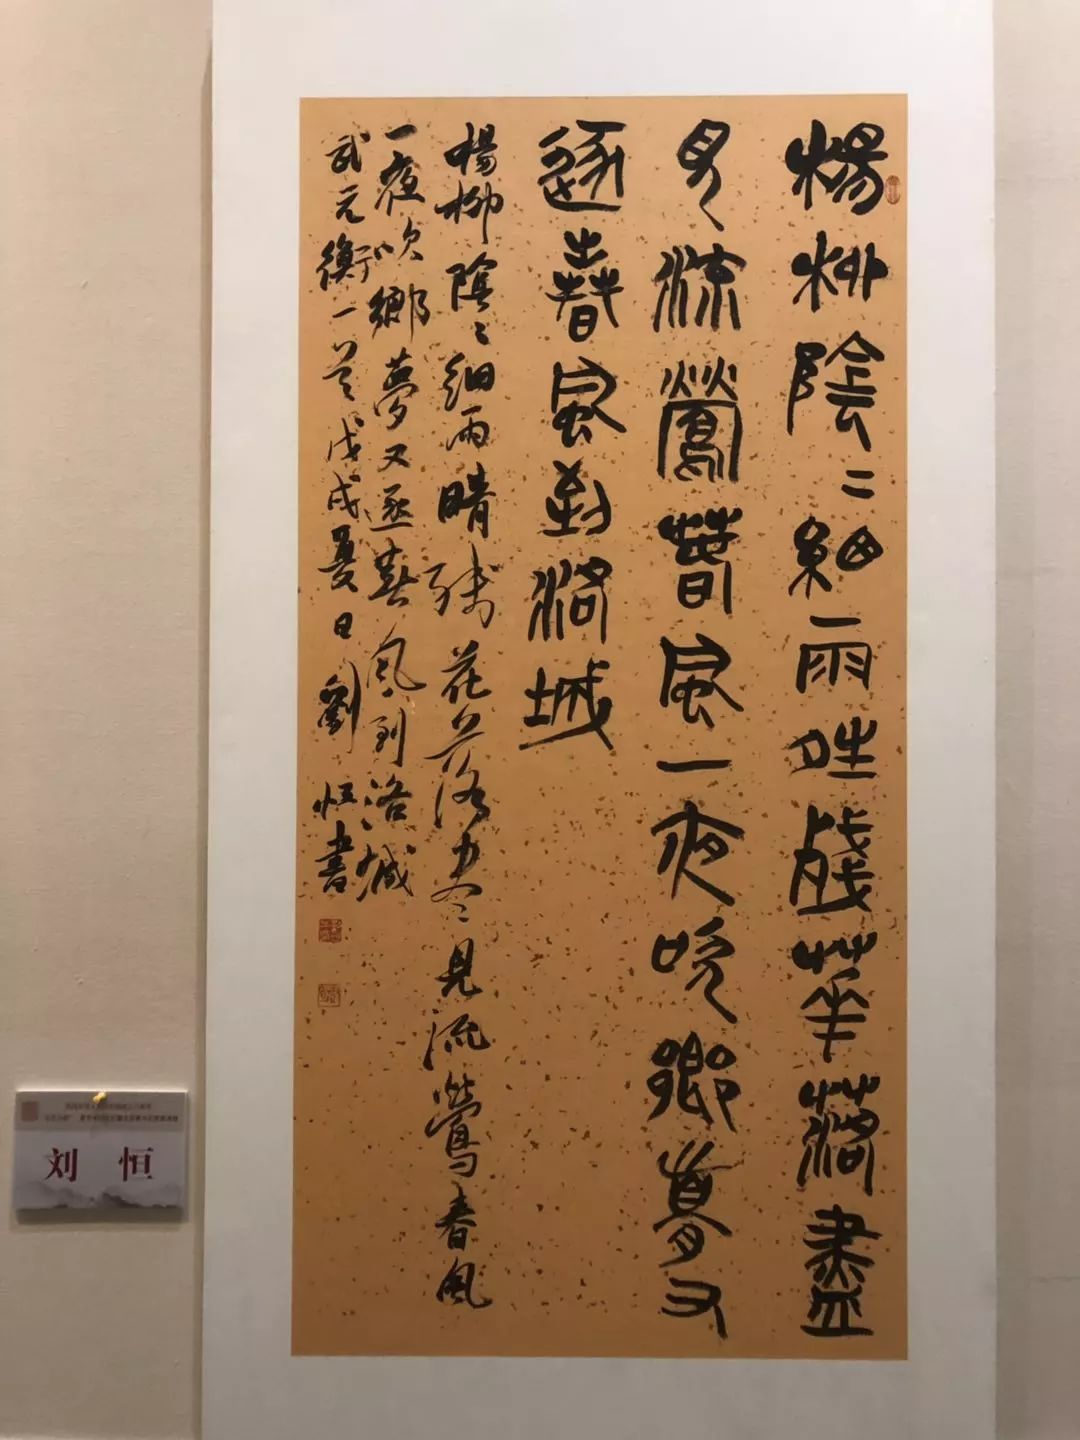 楊柳陰〻細雨晴殘華落盡
見流鶯春風一夜吹鄉夢又
逐春風到洛城
楊柳陰〻細雨晴殘花落盡見流鶯春風
一夜吹鄉夢又逐春風到洛城
武元衡一首戊戌夏日劉恒書
刘恒